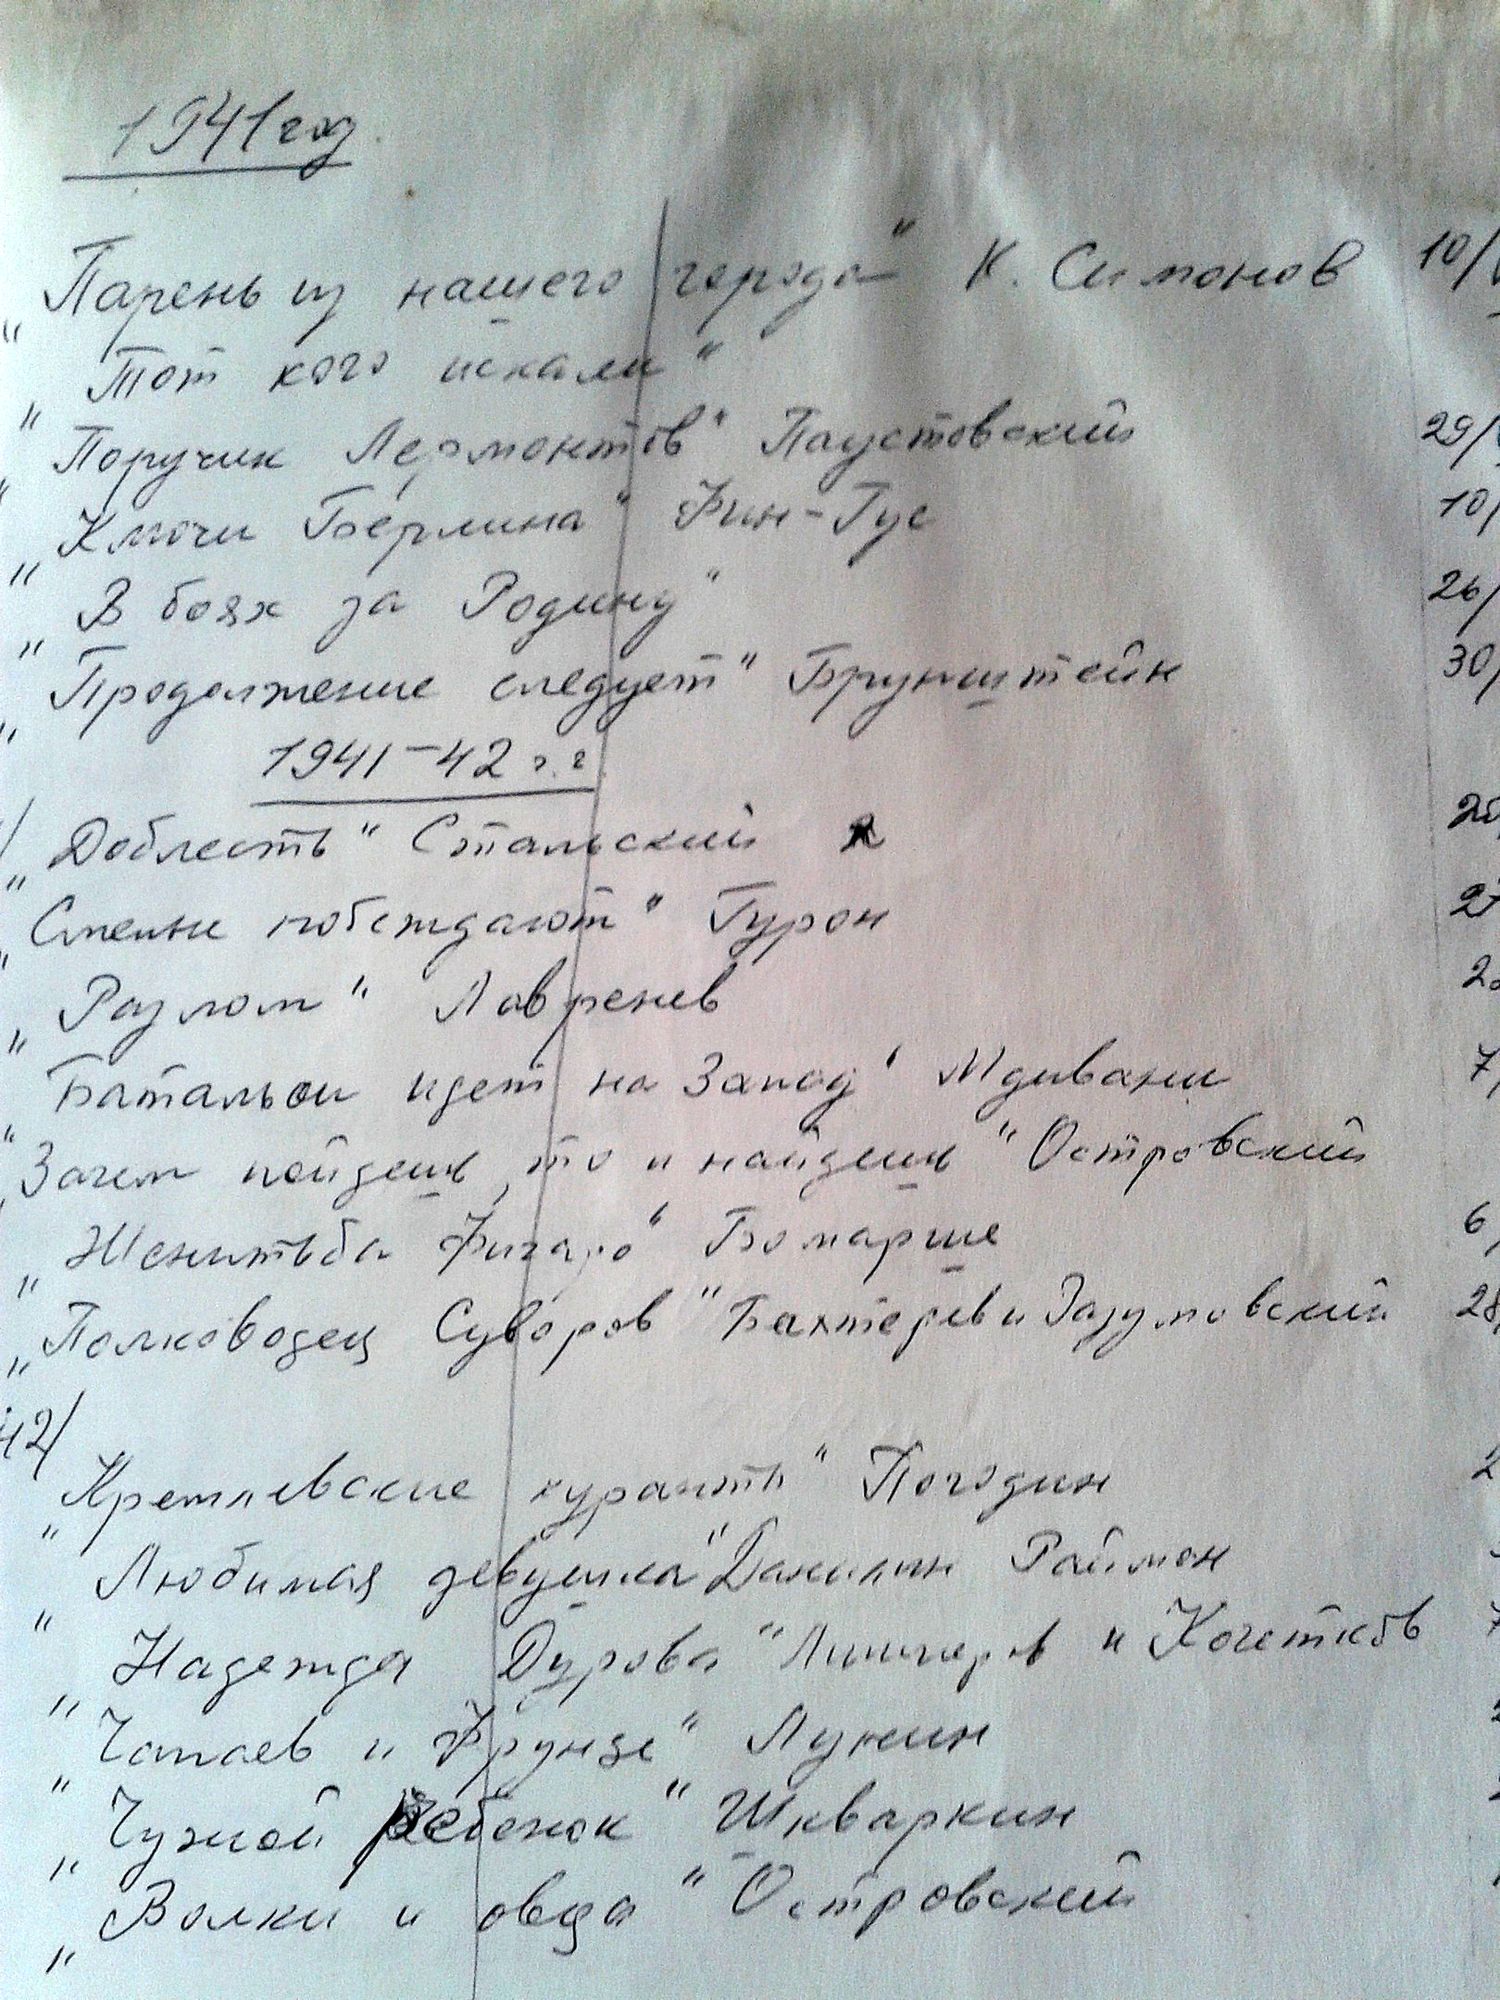 1941 год.
„Парень из нашего города" К. Симонов 10/
„Тот кого искали"
„Поручик Лермонтов" Паустовский 29/
„Ключи Берлина" Фин-Гус 10/
„В боях за Родину" 26/
„Продолжение следует" Брунштейн 30/
1941-42 г.г.
„Доблесть" Стальский 20
„Смелые побеждают" Гурон 27
„Разлом" Лавренев 2
„Батальон идет на Запад" Мдивани 7,
„Зачем пойдешь, то и найдешь" Островский
„Женитьба Фигаро" Бомарше 6,
„Полководец Суворов" Бахтерев и Разумовский 28,
42/
„Кремлевские куранты" Погодин 2
„Любимая девушка" Данилин Раймон
„Надежда Дурова" Липскеров и Кочетков 7
„Чапаев и Фрунзе" Лунин
„Чужой ребенок" Шкваркин
„Волки и овца" Островский